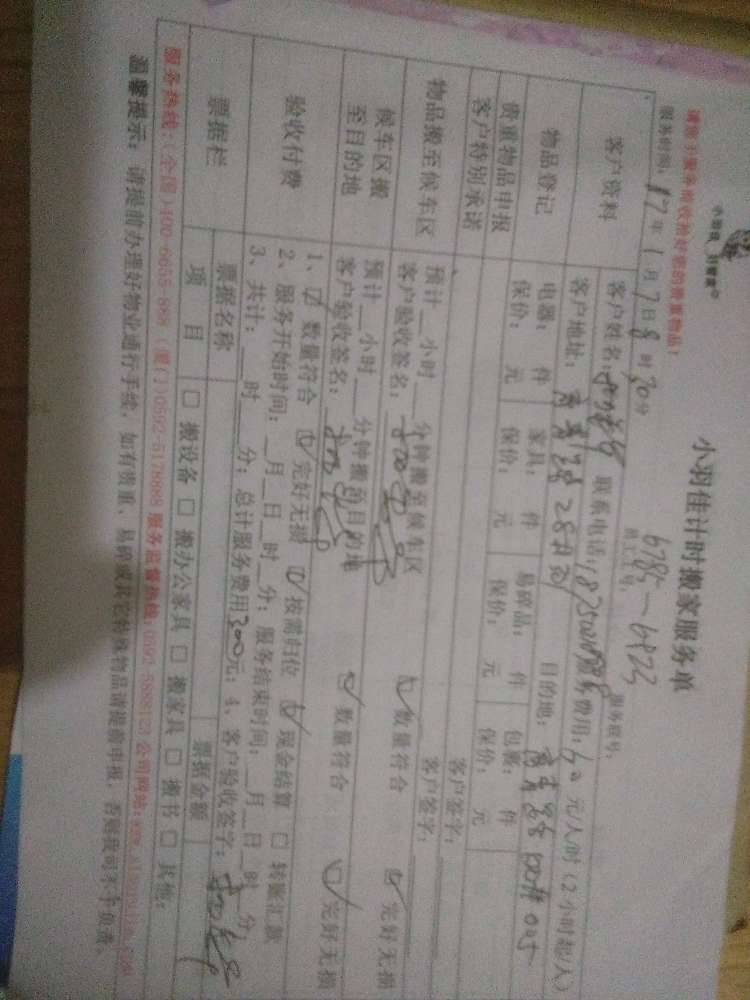 小羽佳计时搬家服务单
小羽佳 好管家
请您于服务前收拾好您的贵重物品!
6785—6823
员工工号: 服务联号:
服务时间: 17年1月7日8时30分
客户资料 客户姓名: 联系电话: 服务费用: 60元/人/时(2小时起/人)
客户地址: 目的地:
物品登记 电器: 件 家具: 件 易碎品: 件 包裹: 件
贵重物品申报 保价: 元 保价: 元 保价: 元 保价: 元
客户特别承诺 客户签字:
物品搬至候车区 预计__小时__分钟搬至候车区 数量符合 完好无损
客户验收签名: 客户签字:
候车区搬至目的地 预计__小时__分钟搬至目的地 数量符合 完好无损
客户验收签名:
验收付费 1、数量符合 完好无损 按需归位 现金结算 □ 转账汇款
2、服务开始时间:__月__日__时__分; 服务结束时间:__月__日__时__分
3、共计:__时__分; 总计服务费用300元; 4、客户验收签字:
票据栏 票据名称 票据金额
项目 □ 搬设备 □ 搬办公家具 □ 搬家具 □ 搬书 □ 其他:
服务热线:(全国)400-6655-888 (厦门)0592-5178888 服务监督热线:0592-5888123 公司网站:
温馨提示: 请提前办理好物业通行手续, 如有贵重、易碎或其它特殊物品请提前申报, 否则我司不予负责。